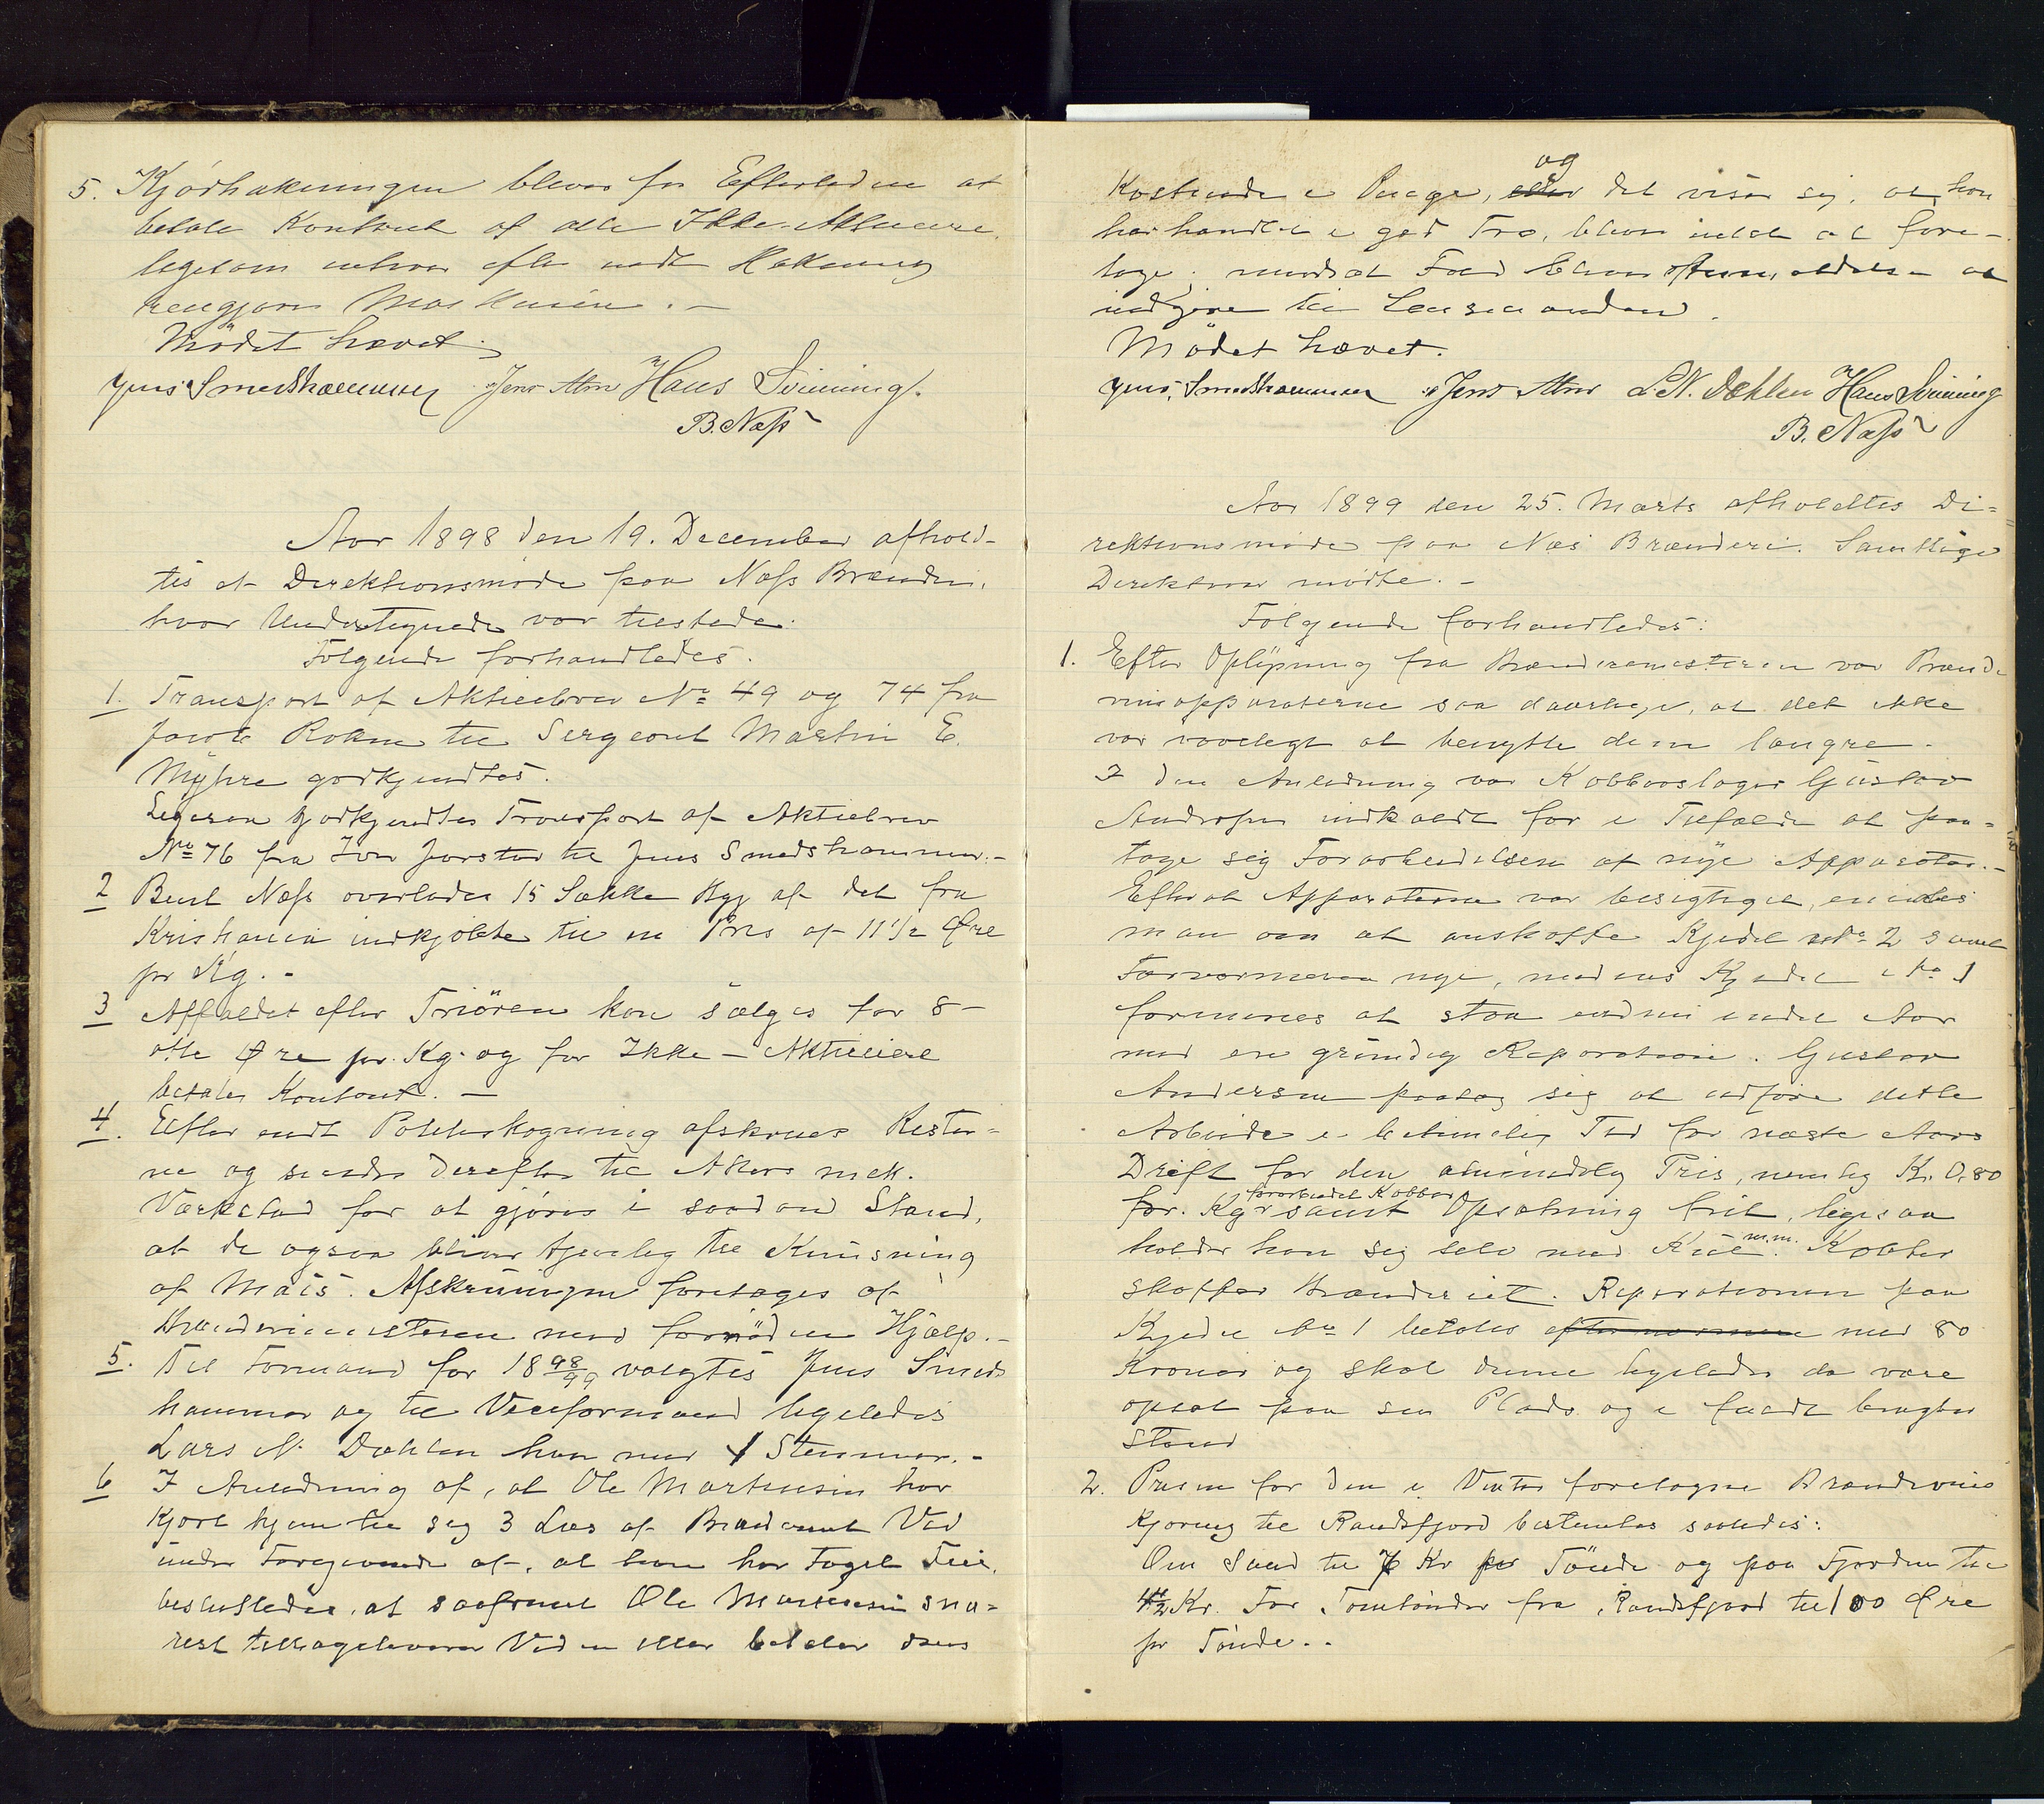 5. Kjørhakningen bliver for Eftertiden at
betale Kontant af alle Ikke-Aktieeiere,
ligesom enhver efter endt Hakning
rengjøres Maskinen. -
Mødet hævet.
Jens Smedshammer Jens Alm Hans Svinning.
B. Næss
Aar 1898 den 19. December afhold-
tes et Direktionsmøde paa Næss Brænderi,
hvor Undertegnede var tilstede.
Følgende forhandledes.
1. Transport af Aktiebrev No 49 og 74 fra
Jacob Rokne til Sergeant Martin E.
Myhre godkjendtes.
Ligesaa godkjendtes Transport af Aktiebrev
No 76 fra Iver Jorstad til Jens Smedshammer. -
2 Berit Næss overlades 15 Sække Byg af det fra
Kristiania indkjøbte til en Pris af 11 1/2 Øre
pr Kg. -
3 Affaldet efter Triören kan sælges for 8 -
otte Øre pr. Kg. og for Ikke - Aktieeiere
betales Kontant. -
4. Efter endt Poteteskogning afskrues Rister-
ne og sendes derefter til Akers mek.
Værksted for at gjøres i saadan Stand,
at de ogsaa bliver tjenelig til Knusning
af Mais. Afskruningen foretages af
Brænderimesteren med fornöden Hjælp. -
5. Til Formand for 18 98/99 valgtes Jens Smeds
hammer og til Viceformand ligeledes
Lars N. Dæhlen han med 1 Stemmer. -
6 I Anledning af, at Ole Martinsen har
kjørt hjem til sig 3 Læs af Brænderiets Ved
under Foregivende af, at han har Taget Feil,
besluttedes, at saafremt Ole Martinsen sna-
rest tilbageleverer Veden eller betaler dens
og
Kostende i Penge, eller det viser sig, at han
har handlet i god Tro, bliver intet at fore-
tage; modsat Fald bliver Anmeldelse at
indgive til Lensmanden.
Mødet hævet.
Jens Smedshammer Jens Alm L. N. Dæhlen Hans Svinning
B. Næss
Aar 1899 den 25. Marts afholdtes Di-
rektionsmøde paa Næs Brænderi. Samtlige
Direktører mødte. -
Følgende forhandledes:
1. Efter Oplysning fra Brænderimesteren var Brænde
vinsapparaterne saa daarlige, at det ikke
var raadeligt at benytte dem længre.
I den Anledning var Kobberslager Gustav
Andersen indkaldt for i Tilfælde at paa-
tage sig Forarbeidelsen af nye Apparater. -
Efterat Apparaterne var besigtiget, enedes
man om at anskaffe Kjedel No 2 samt
Forvarmeren nye, medens Kjedel No 1
formenes at staa endnu endel Aar
med en grundig Reparation. Gustav
Andersen paatog sig at udføre dette
Arbeide i betimelig Tid for næste Aars
Drift for den almindelig Pris, nemlig Kr. 0,80
forarbeidet Kobber
for. Kgr samt Opsætning frit, ligesaa
m.m.
holder han sig selv med Kul. Kobber
skaffer Brænderiet. Reparationen paa
Kjedel No 1 betales efter med 80
Kroner og skal denne ligeledes da være
opsat paa sin Plads og i fuldt brugbar
Stand
2. Prisen for den i Vinter foretagne Brændevins
Kjøring til Randsfjord bestemtes saaledes:
Om Land til Kr pr Tönde og paa Fjorden til
1/2 Kr. For Tomtönder fra Randsfjord til 100 Øre
pr Tönde. -